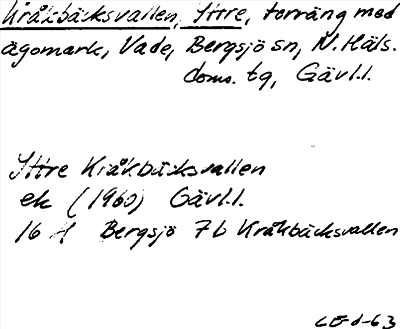 Kråkbäcksvallen, Yttre, terräng med
ägomark, Vade, Bergsjö sn, N. Häls.
doms. tg, Gävl.l.
Yttre Kråkbäcksvallen
ek (1960) Gävl.l.
16 H Bergsjö 7b Kråkbäcksvallen